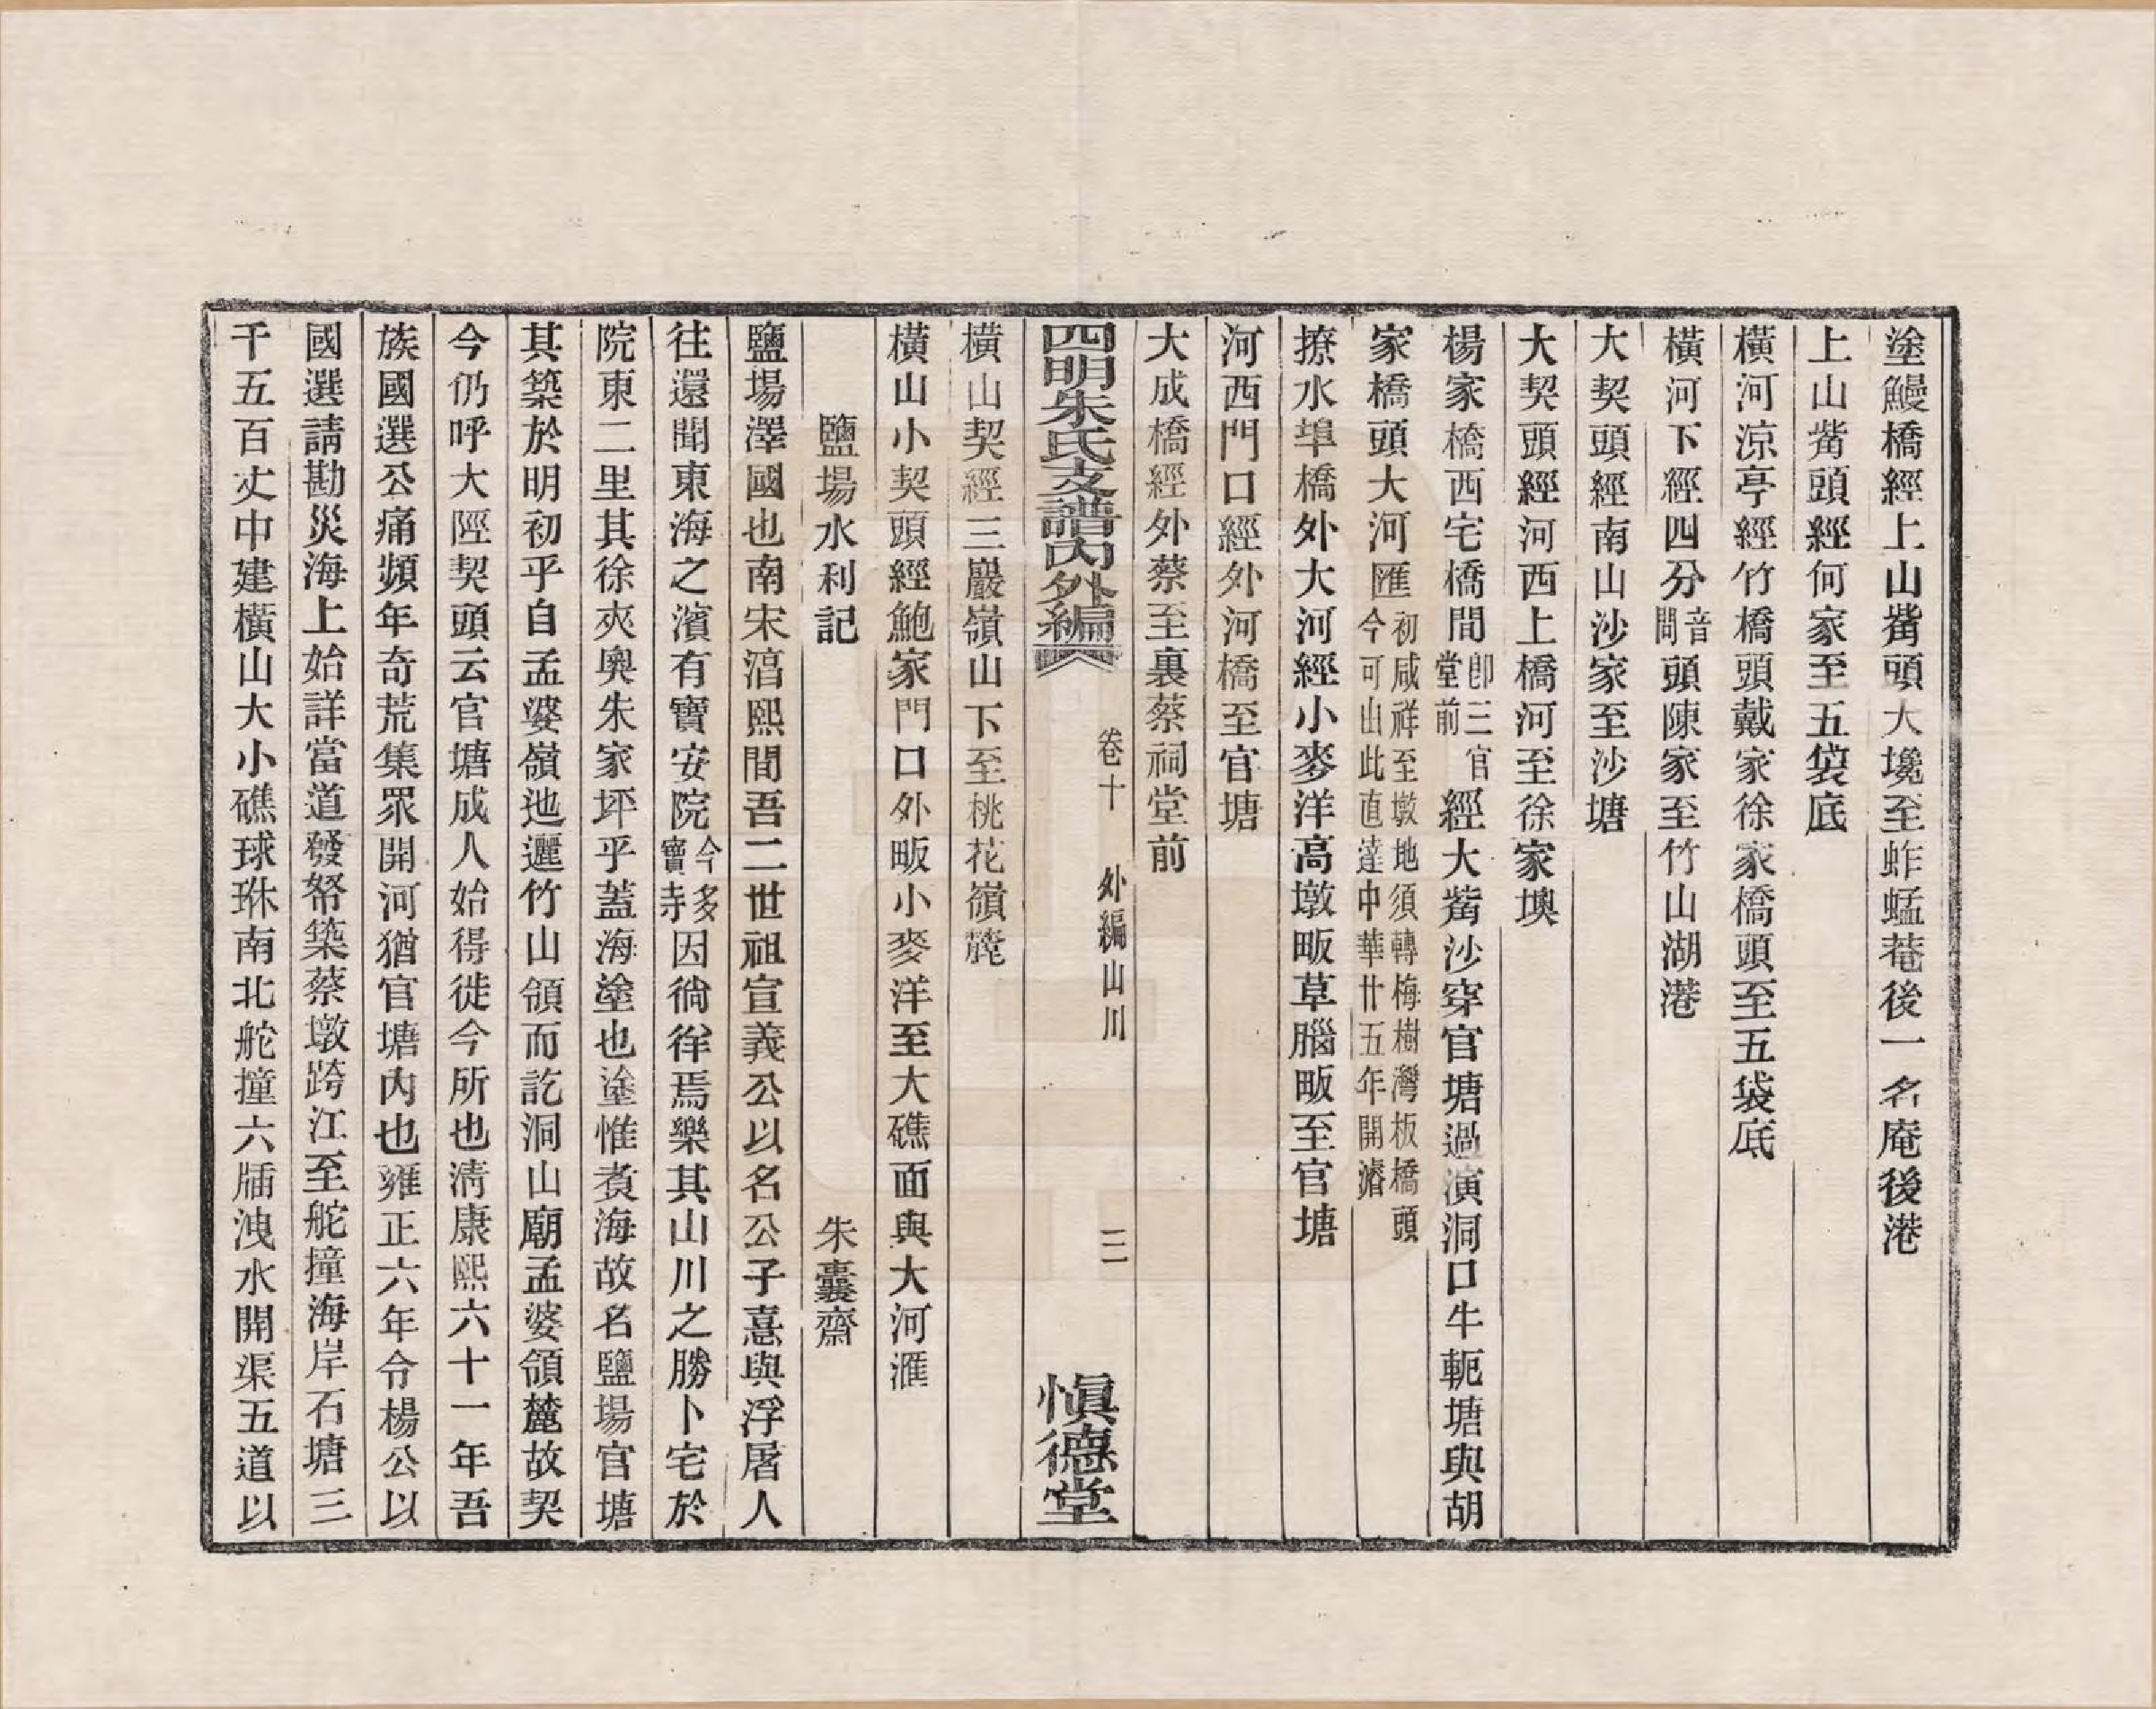 塗鰻橋經上山觜頭大堍至蚱蜢菴後一名庵後港
上山觜頭經何家至五袋底
橫河涼亭經竹橋頭戴家徐家橋頭至五袋底
橫河下經四分音間頭陳家至竹山湖港
大契頭經南山沙家至沙塘
大契頭經河西上橋河至徐家墺
楊家橋西宅橋間卽三官堂前經大觜沙穿官塘過演洞口牛軛塘與胡
家橋頭大河匯初咸祥至墩地須轉梅樹灣板橋頭今可山此直達中華廿五年開濬
撩水埠橋外大河經小麥洋高墩畈草腦畈至官塘
河西門口經外河橋至官塘
大成橋經外蔡至裏蔡祠堂前
四明朱氏支譜內外編 卷十 外編山川 三 慎德堂
橫山契經三巖嶺山下至桃花嶺麓
橫山小契頭經鮑家門口外畈小麥洋至大礁面與大河滙
鹽場水利記 朱囊齋
鹽場澤國也南宋淳熙間吾二世祖宣義公以名公子憙與浮屠人
往還聞東海之濱有寶安院今多寶寺因徜徉焉樂其山川之勝卜宅於
院東二里其徐夾奧朱家坪乎蓋海塗也塗惟煑海故名鹽場官塘
其築於明初乎自孟婆嶺迆邐竹山領而訖洞山廟孟婆領麓故契
今仍呼大陘契頭云官塘成人始得徙今所也清康熙六十一年吾
族國選公痛頻年奇荒集眾開河猶官塘內也雍正六年令楊公以
國選請勘災海上始詳當道發帑築蔡墩跨江至舵撞海岸石塘三
千五百丈中建橫山大小礁球琳南北舵撞六牐洩水開渠五道以